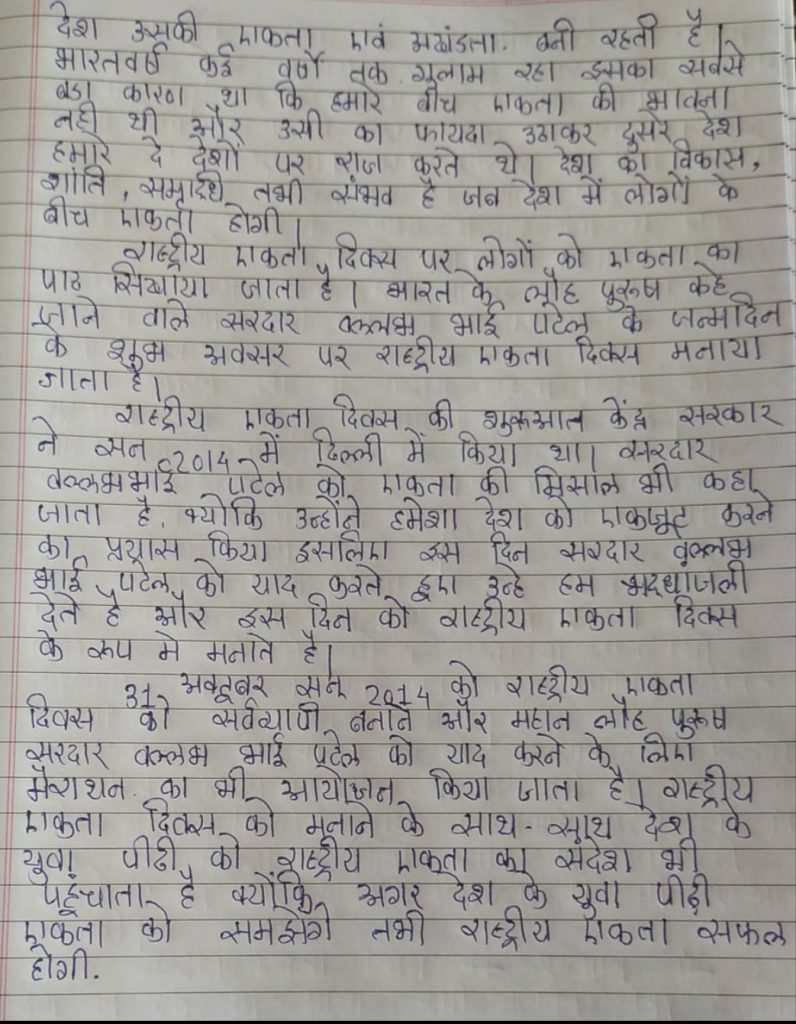 देश उसकी एकता एवं अखंडता. बनी रहती है।
भारतवर्ष कई वर्षों तक गुलाम रहा इसका सबसे
बडा कारण था कि हमारे बीच एकता की भावना
नही थी और उसी का फायदा उठाकर दुसरे देश
हमारे दे देशों पर राज करते थे। देश का विकास,
शांति, समृद्धि तभी संभव है जब देश में लोगों के
बीच एकता होगी।
राष्ट्रीय एकता दिवस पर लोगों को एकता का
पाठ सिखाया जाता है। भारत के लौह पुरुष कहे
जाने वाले सरदार वल्लभ भाई पटेल के जन्मदिन
के शुभ अवसर पर राष्ट्रीय एकता दिवस मनाया
जाता है।
राष्ट्रीय एकता दिवस की शुरूआत केंद्र सरकार
ने सन 2014 में दिल्ली में किया था। सरदार
वल्लभभाई पटेल को एकता की मिसाल भी कहा
जाता है, क्योकि उन्होंने हमेशा देश को एकजूट करने
का प्रयास किया इसलिए इस दिन सरदार वल्लभ
भाई पटेल को याद करते हुए उन्हे हम श्रद्धाजली
देते है और इस दिन को राष्ट्रीय एकता दिवस
के रूप मे मनाते है।
31 अक्टूबर सन 2014 को राष्ट्रीय एकता
दिवस को सर्वव्यापी बनाने और महान लौह पुरुष
सरदार वल्लभ भाई पटेल को याद करने के लिए
मैराथन का भी आयोजन किया जाता है। राष्ट्रीय
एकता दिवस को मनाने के साथ-साथ देश के
युवा पीढी को राष्ट्रीय एकता का संदेश भी
पहुंचाता है क्योंकि अगर देश के युवा पीढ़ी
एकता को समझेंगे तभी राष्ट्रीय एकता सफल
होगी.